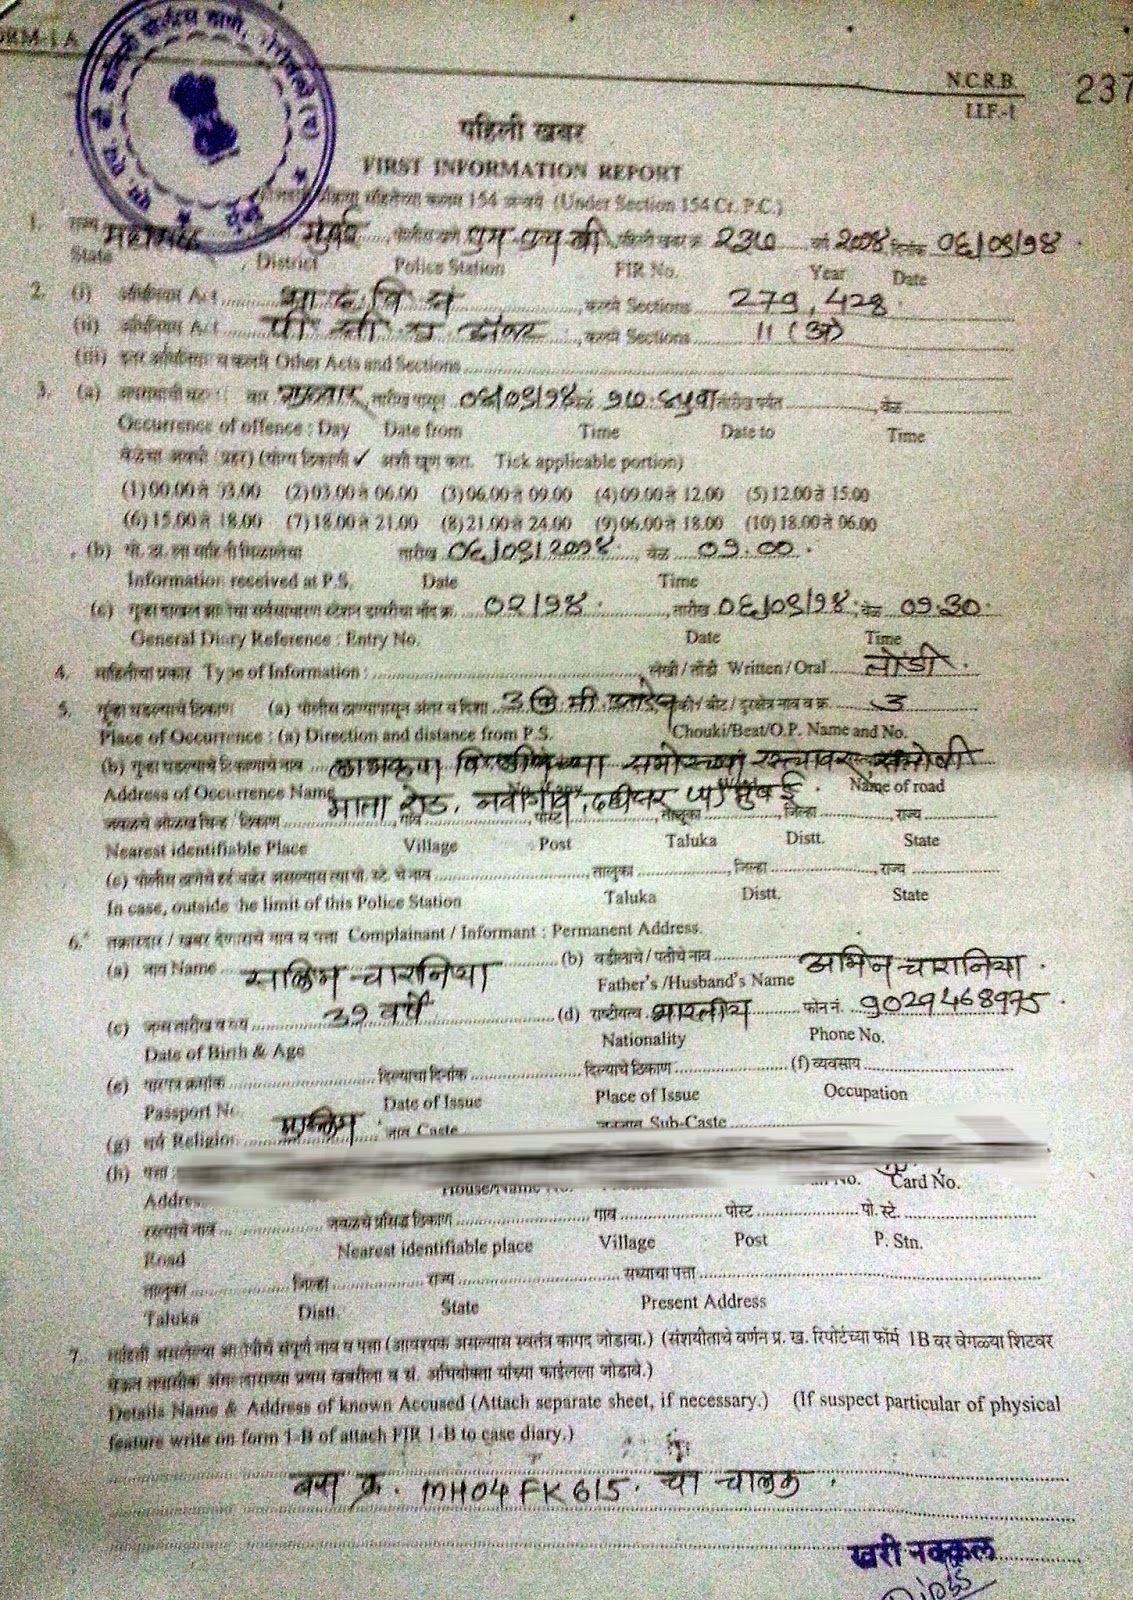 N.C.R.B.
I.I.F.-I
237
पहिली खबर
FIRST INFORMATION REPORT
कलम 154 अन्वये (Under Section 154 Cr. P.C.)
1. राज्य महाराष्ट्र मुंबई पोलीस ठाणे एम एच बी पहिली खबर क्र. 237 वर्ष 2014 दिनांक 06/09/14
State District Police Station FIR No. Year Date
2. (i) अधिनियम Act भा द वि स , कलमे Sections 279, 428
(ii) अधिनियम Act पी सी ए , कलमे Sections 11 (अ)
(iii) इतर अधिनियम व कलमे Other Acts and Sections
3. (a) वार शुक्रवार, तारीख पासून तारीख पर्यंत , वेळ
Occurrence of offence : Day Date from Time Date to Time
(योग्य ठिकाणी ✓ अशी खूण करा. Tick applicable portion)
(1) 00.00 ते 03.00 (2) 03.00 ते 06.00 (3) 06.00 ते 09.00 (4) 09.00 ते 12.00 (5) 12.00 ते 15.00
(6) 15.00 ते 18.00 (7) 18.00 ते 21.00 (8) 21.00 ते 24.00 (9) 06.00 ते 18.00 (10) 18.00 ते 06.00
(b) पो. ठा. ला माहिती मिळालेचा तारीख 06/09/2014, वेळ 09.00
Information received at P.S. Date Time
(c) , तारीख 06/09/14, वेळ 09.30
General Diary Reference : Entry No. Date Time
4. माहितीचा प्रकार Type of Information : लेखी / तोंडी Written / Oral तोंडी
5. गुन्हा घडल्याचे ठिकाण (a) पोलीस ठाण्यापासून अंतर व दिशा 3 कि मी चौकी / बीट / दुरक्षेत्र नाव व क्र. 3
Place of Occurrence : (a) Direction and distance from P.S. Chouki/Beat/O.P. Name and No.
(b) गुन्हा घडल्याचे ठिकाणाचे नाव समोरच्या रस्त्यावर
Address of Occurrence Name माता रोड, नवागांव, दहीसर (प) मुंबई. Name of road
जवळचे ओळख चिन्ह ठिकाण , गाव , पोस्ट , तालुका , जिल्हा , राज्य
Nearest identifiable Place Village Post Taluka Distt. State
(c) पोलीस ठाणेचे हद्दी बाहेर असल्यास त्या पो. स्टे. चे नाव , तालुका , जिल्हा , राज्य
In case, outside the limit of this Police Station Taluka Distt. State
6. तक्रारदार / खबर देणाराचे नाव व पत्ता Complainant / Informant : Permanent Address.
(a) नाव Name सलिम चारनिया (b) वडीलाचे / पतीचे नाव चारानिया
Father's /Husband's Name
(c) जन्म तारीख व वय वर्षे (d) राष्ट्रीयत्व भारतीय फोन नं. 9029468975
Date of Birth & Age Nationality Phone No.
(e) पारपत्र क्रमांक दिल्याचा दिनांक दिल्याचे ठिकाण (f) व्यवसाय
Passport No. Date of Issue Place of Issue Occupation
(g) धर्म Religion मुस्लिम Caste Sub-Caste
(h) पत्ता
Address Card No.
रस्त्याचे नाव जवळचे प्रसिद्ध ठिकाण गाव पोस्ट पो. स्टे.
Road Nearest identifiable place Village Post P. Stn.
तालुका जिल्हा राज्य सध्याचा पत्ता
Taluka Distt. State Present Address
7. माहिती असलेल्या आरोपीचे संपूर्ण नाव व पत्ता (आवश्यक असल्यास स्वतंत्र कागद जोडावा.) (संशयीताचे वर्णन प्र. ख. रिपोर्टच्या फॉर्म 1B वर वेगळ्या शिटवर
प्रथम खबरीला व सं. अभियोक्ता यांच्या फाईलला जोडावे.)
Details Name & Address of known Accused (Attach separate sheet, if necessary.) (If suspect particular of physical
feature write on form 1-B of attach FIR 1-B to case diary.)
बस क्र. MH04 FK 615. चा चालक.
खरी नक्कल